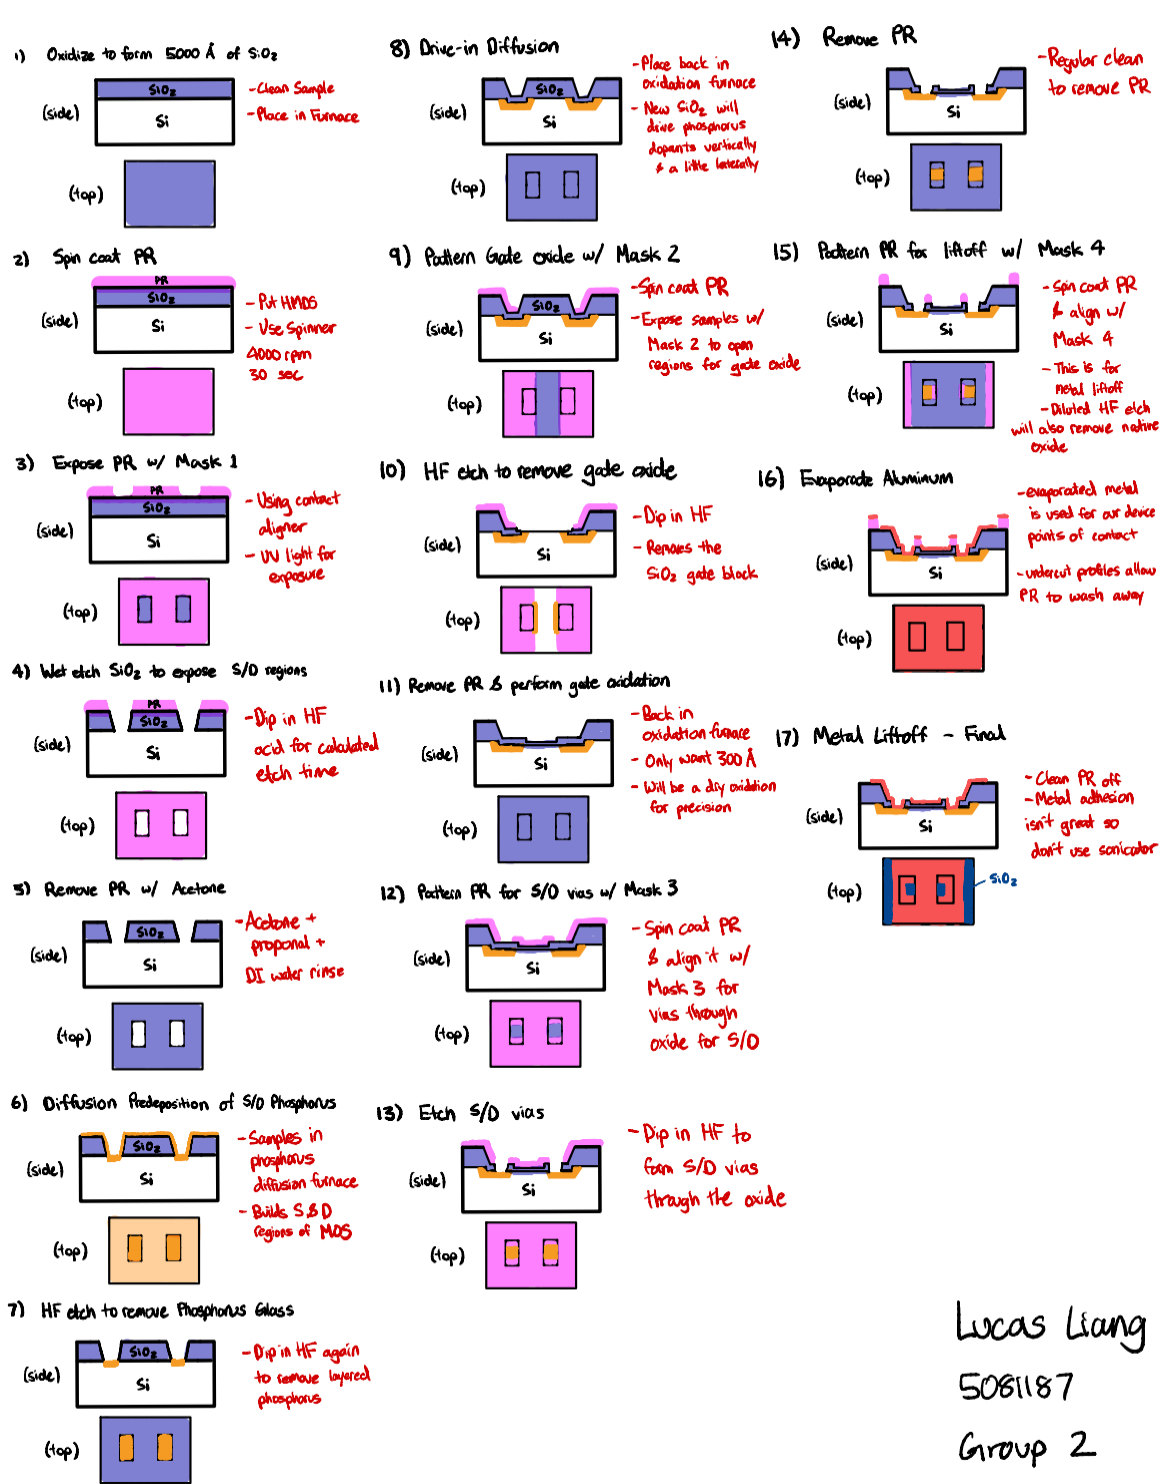 1) Oxidize to form 5000 Å of SiO₂
(side)
SiO₂
Si
- Clean Sample
- Place in Furnace
(top)
2) Spin coat PR
PR
(side)
SiO₂
Si
- Put HMDS
- Use Spinner
4000 rpm
30 sec
(top)
3) Expose PR w/ Mask 1
PR
(side)
SiO₂
Si
- Using contact
aligner
- UV light for
exposure
(top)
4) Wet etch SiO₂ to expose S/D regions
PR
(side)
SiO₂
Si
- Dip in HF
acid for calculated
etch time
(top)
5) Remove PR w/ Acetone
(side)
SiO₂
Si
- Acetone +
propanal +
DI water rinse
(top)
6) Diffusion Predeposition of S/D Phosphorus
(side)
SiO₂
Si
- Samples in
phosphorus
diffusion furnace
- Builds S & D
regions of MOS
(top)
7) HF etch to remove Phosphorus Glass
(side)
SiO₂
Si
- Dip in HF again
to remove layered
phosphorus
(top)
8) Drive-in Diffusion
(side)
SiO₂
Si
- Place back in
oxidation furnace
- New SiO₂ will
drive phosphorus
dopants vertically
& a little laterally
(top)
9) Pattern Gate oxide w/ Mask 2
(side)
SiO₂
Si
- Spin coat PR
- Expose samples w/
Mask 2 to open
regions for gate oxide
(top)
10) HF etch to remove gate oxide
(side)
Si
- Dip in HF
- Removes the
SiO₂ gate block
(top)
11) Remove PR & perform gate oxidation
(side)
Si
- Back in
oxidation furnace
- Only want 300 Å
- Will be a dry oxidation
for precision
(top)
12) Pattern PR for S/D vias w/ Mask 3
(side)
Si
- Spin coat PR
& align it w/
Mask 3 for
vias through
oxide for S/D
(top)
13) Etch S/D vias
(side)
Si
- Dip in HF to
form S/D vias
through the oxide
(top)
14) Remove PR
(side)
Si
- Regular clean
to remove PR
(top)
15) Pattern PR for liftoff w/ Mask 4
(side)
Si
- Spin coat PR
& align w/
Mask 4
- This is for
metal liftoff
- Diluted HF etch
will also remove native
oxide
(top)
16) Evaporate Aluminum
(side)
Si
- evaporated metal
is used for our device
points of contact
- undercut profiles allow
PR to wash away
(top)
17) Metal Liftoff - Final
(side)
Si
- Clean PR off
- Metal adhesion
isn't great so
don't use sonicator
(top)
SiO₂
Lucas Liang
5081187
Group 2